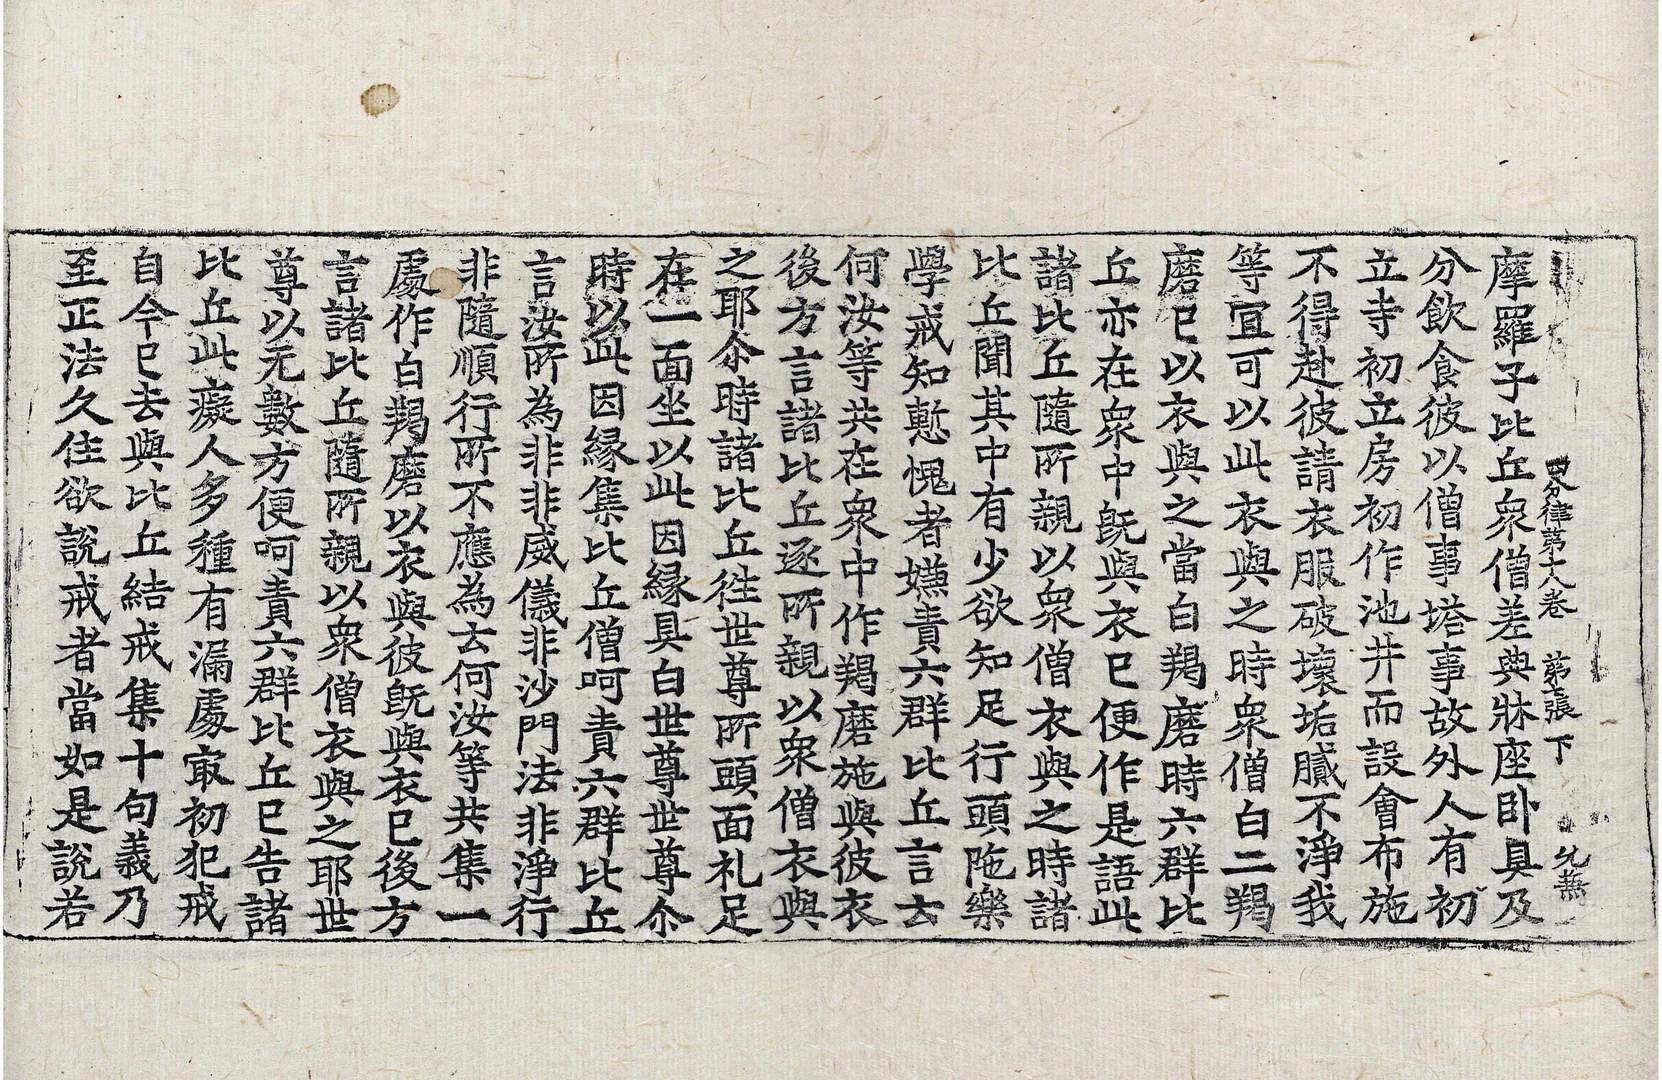 四分律第十八卷 第 張 下
摩羅子比丘衆僧差典牀座卧具及
分飲食彼以僧事塔事故外人有初
立寺初立房初作池井而設會布施
不得赴彼請衣服破壞垢膩不淨我
等宜可以此衣與之時衆僧白二羯
磨已以衣與之當白羯磨時六群比
丘亦在衆中旣與衣已便作是語此
諸比丘隨所親以衆僧衣與之時諸
比丘聞其中有少欲知足行頭陁樂
學戒知慙愧者嫌責六群比丘言云
何汝等共在衆中作羯磨施與彼衣
後方言諸比丘逐所親以衆僧衣與
之耶尒時諸比丘徃世尊所頭面礼足
在一面坐以此因緣具白世尊世尊尒
時以此因緣集比丘僧呵責六群比丘
言汝所為非非威儀非沙門法非淨行
非隨順行所不應為云何汝等共集一
處作白羯磨以衣與彼旣與衣已後方
言諸比丘隨所親以衆僧衣與之耶世
尊以无數方便呵責六群比丘已告諸
比丘此癡人多種有漏處㝡初犯戒
自今已去與比丘結戒集十句義乃
至正法久住欲說戒者當如是說若